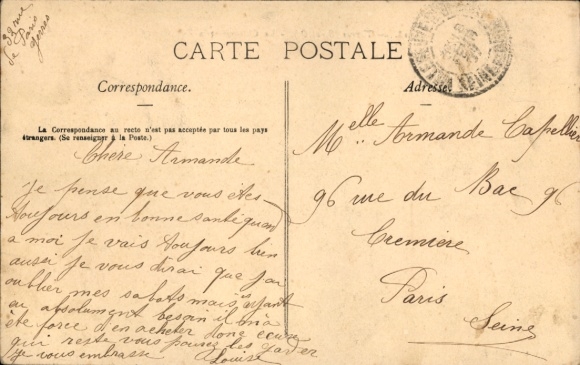 39 rue
de Paris
Yerres
CARTE POSTALE
Correspondance.
Adresse
La Correspondance au recto n'est pas acceptée par tous les pays
étrangers. (Se renseigner à la Poste.)
Chère Armande
Je pense que vous êtes
toujours en bonne santé quand
a moi je vais toujours bien
aussi je vous dirai que j'ai
oublier mes sabots mais ayant
au absolument besoin il m'a
été forcé d'en acheter donc ceux
qui reste vous pouvez les garder
je vous embrasse Louise
Melle Armande Capellier
96 rue du Bac 96
Cremière
Paris
Seine